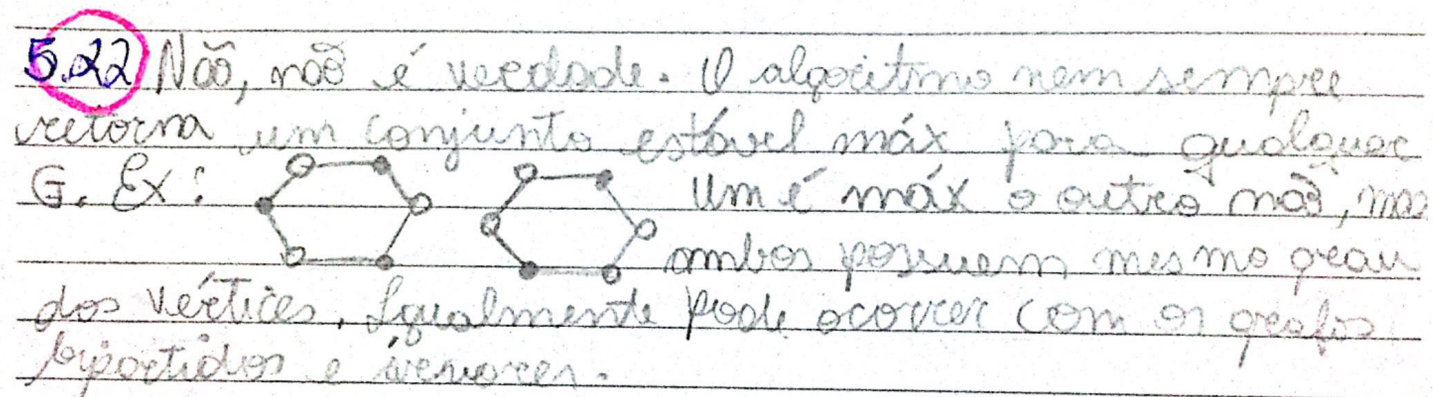 5.22 Não, não é verdade. O algoritmo nem sempre
retorna um conjunto estável máx para qualquer
G. Ex: Um é máx o outro não, mas
ambos possuem mesmo grau
dos vértices. Igualmente pode ocorrer com os grafos
bipartidos e árvores.